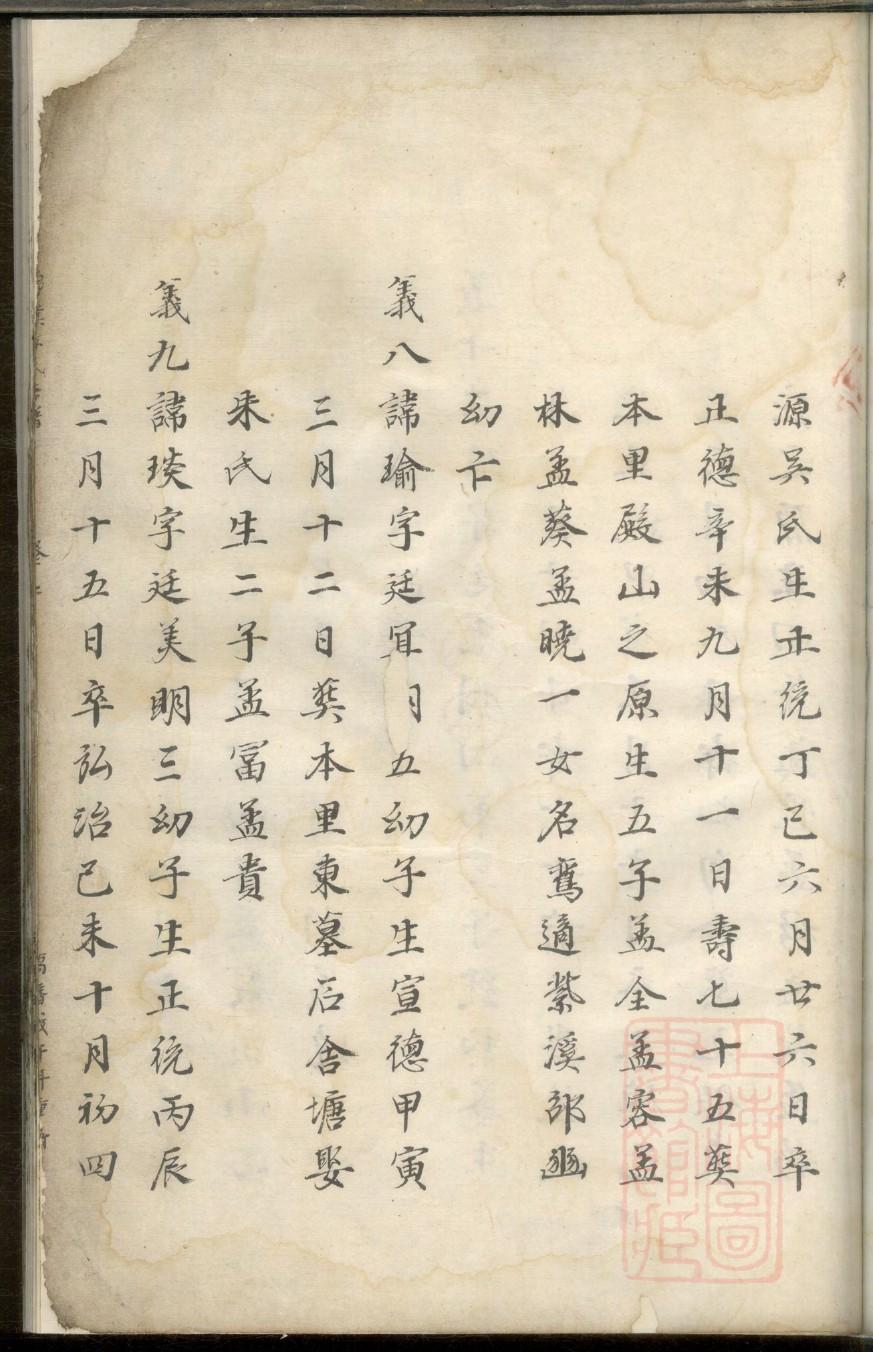 源吴氏生正统丁巳六月廿六日卒
正德辛未九月十一日壽七十五葬
本里殿山之原生五子孟全孟容孟
林孟葵孟曉一女名鸾適紫溪邵
幼亡
義八諱瑜字廷五幼子生宣德甲寅
三月十二日葬本里東墓后舍塘娶
朱氏生二子孟冨孟貴
義九諱琰字廷美明三幼子生正统丙辰
三月十五日卒弘治己未十月初四
上海圖書館藏